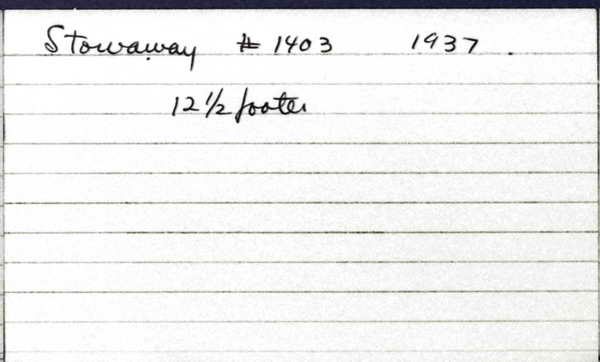 Stowaway # 1403 1937.
12 1/2 footer